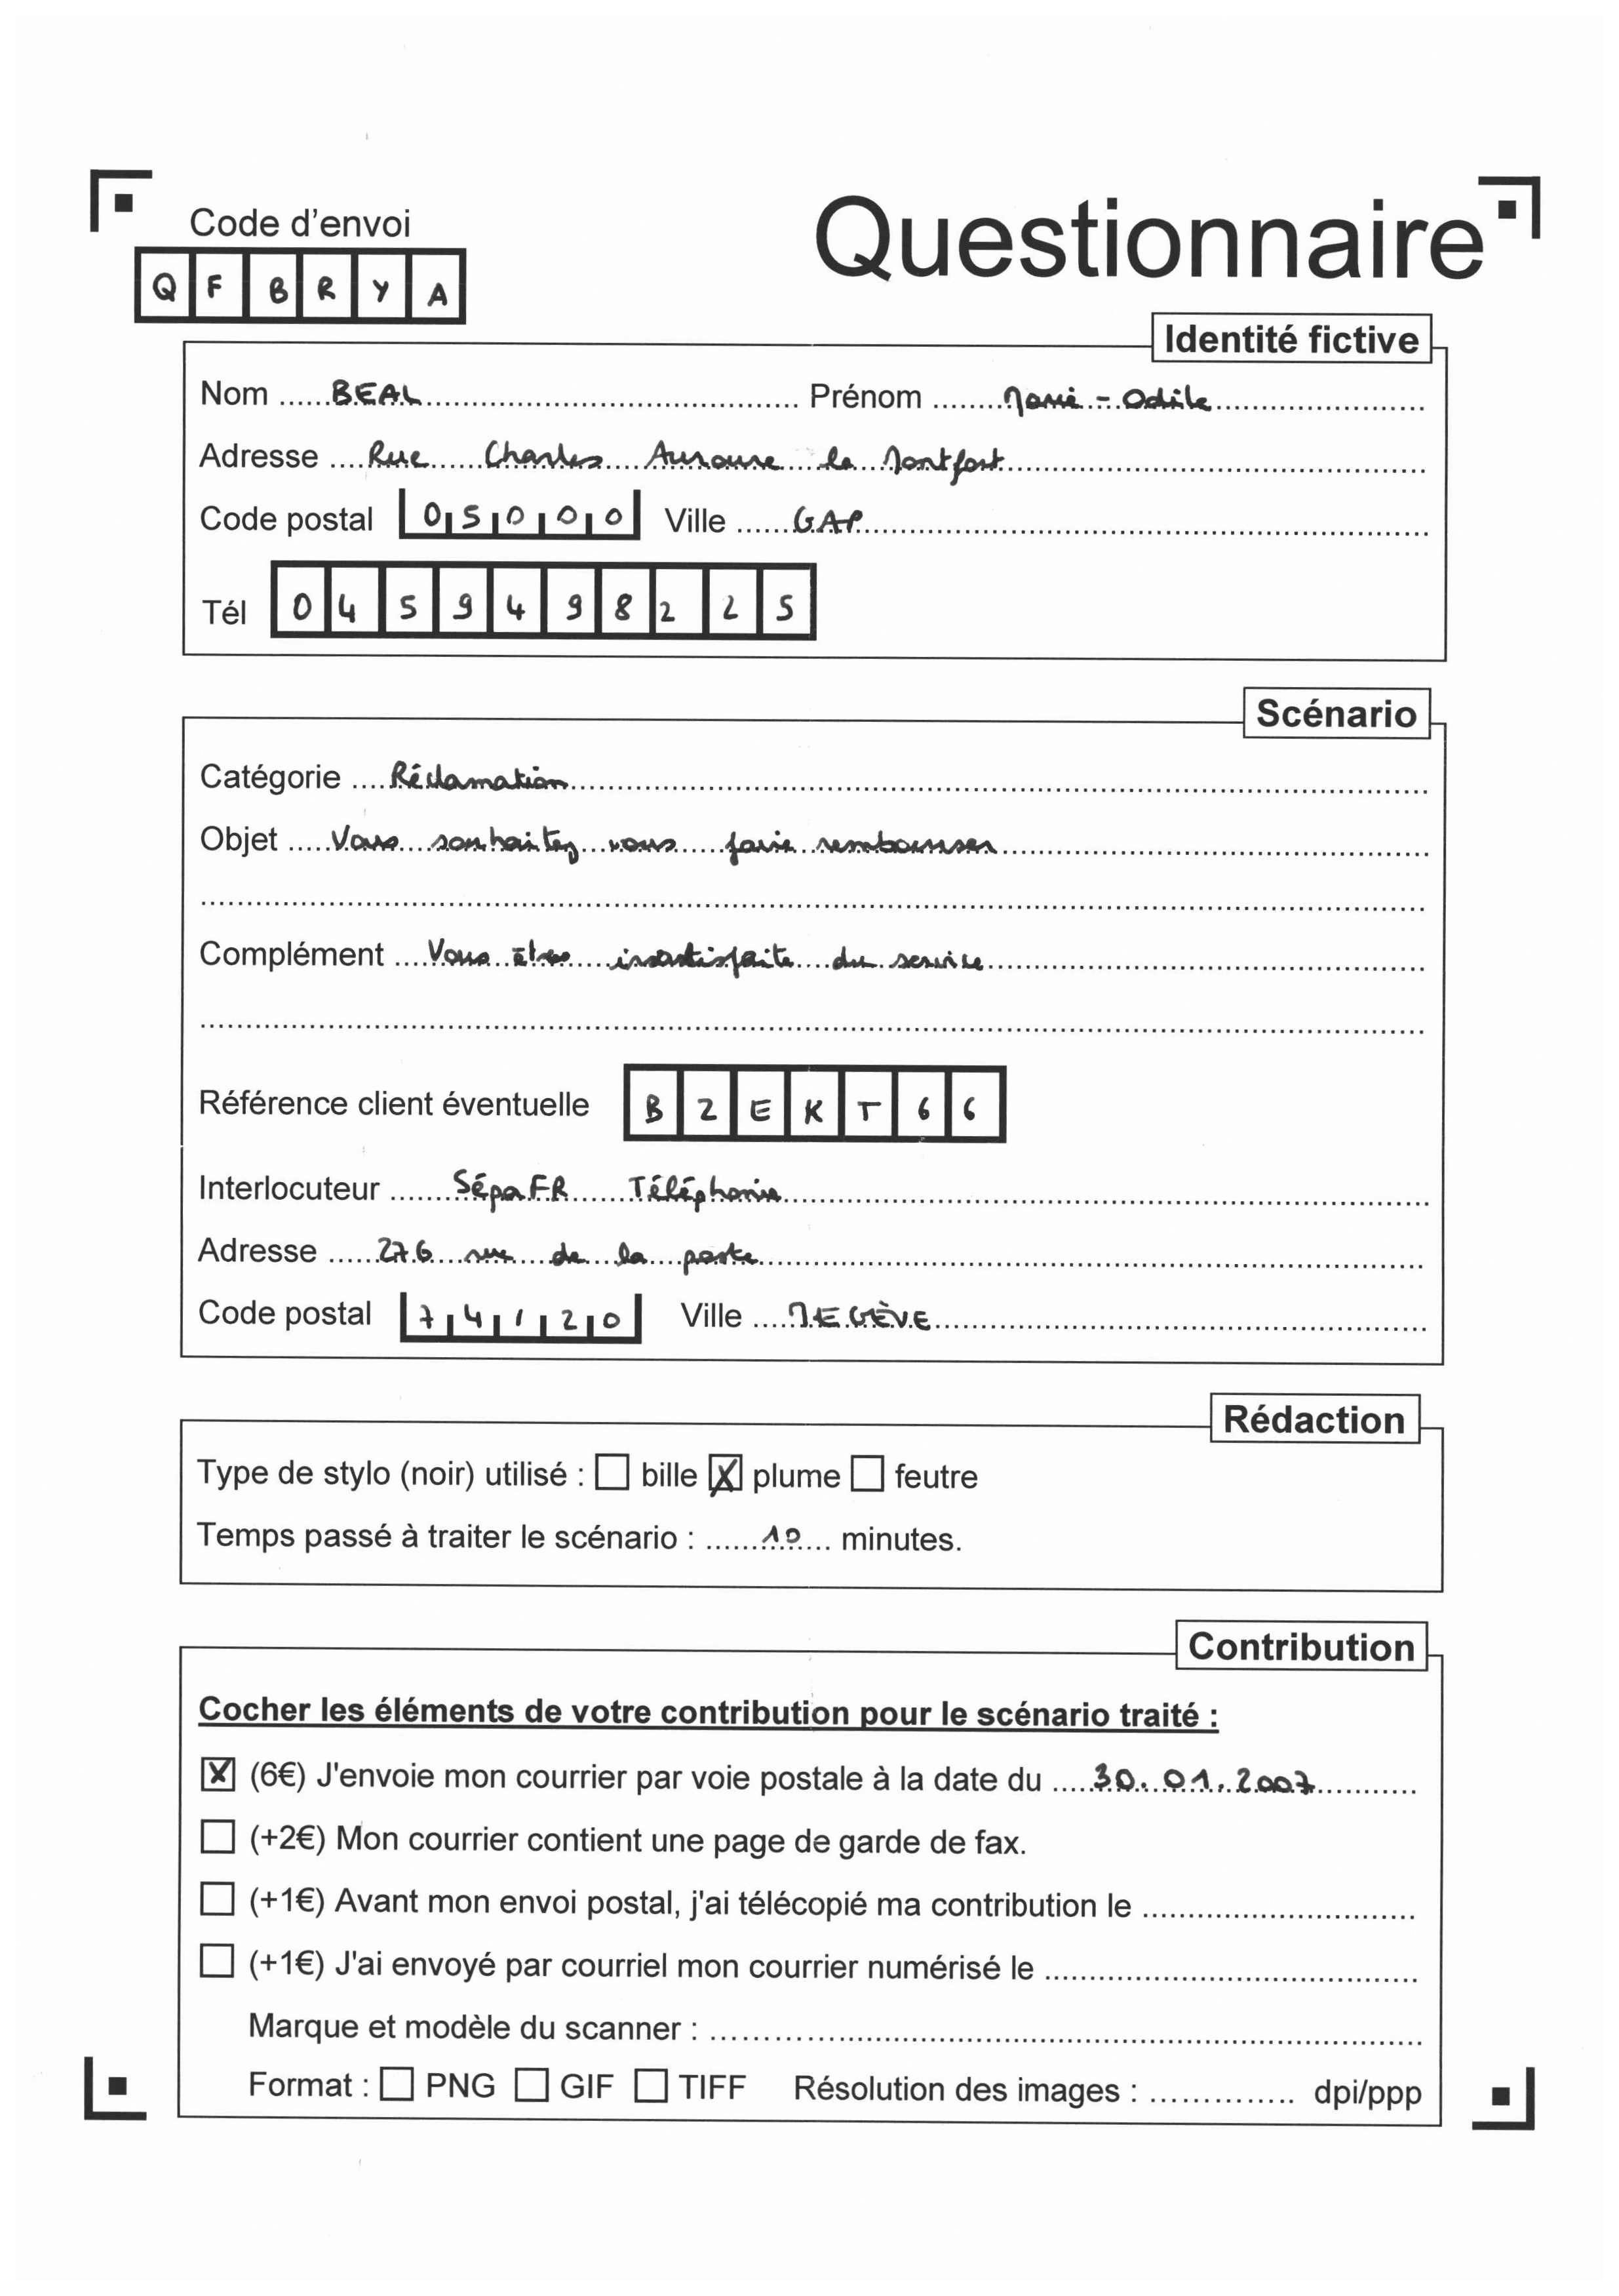 Code d'envoi
Questionnaire
Q F B R Y A
Identité fictive
Nom ..... BEAL ..... Prénom ..... Marie - Odile .....
Adresse .... Rue Charles Aurouze le Montfort .....
Code postal 0 5 0 0 0 Ville ..... GAP .....
Tél 0 4 5 9 4 9 8 2 2 5
Scénario
Catégorie .... Réclamation .....
Objet .... Vous souhaitez vous faire rembourser .....
Complément ... Vous êtes insatisfaite du service .....
Référence client éventuelle B Z E K T 6 6
Interlocuteur ...... SépaFR Téléphonie .....
Adresse ..... 276 rue de la poste .....
Code postal 7 4 1 2 0 Ville .... MEGÈVE .....
Rédaction
Type de stylo (noir) utilisé : ☐ bille ☒ plume ☐ feutre
Temps passé à traiter le scénario : ...... 10 ..... minutes.
Contribution
Cocher les éléments de votre contribution pour le scénario traité :
☒ (6€) J'envoie mon courrier par voie postale à la date du .... 30.01.2007 .....
☐ (+2€) Mon courrier contient une page de garde de fax.
☐ (+1€) Avant mon envoi postal, j'ai télécopié ma contribution le ..............................
☐ (+1€) J'ai envoyé par courriel mon courrier numérisé le ..............................
Marque et modèle du scanner : ..............................
Format : ☐ PNG ☐ GIF ☐ TIFF Résolution des images : .............. dpi/ppp